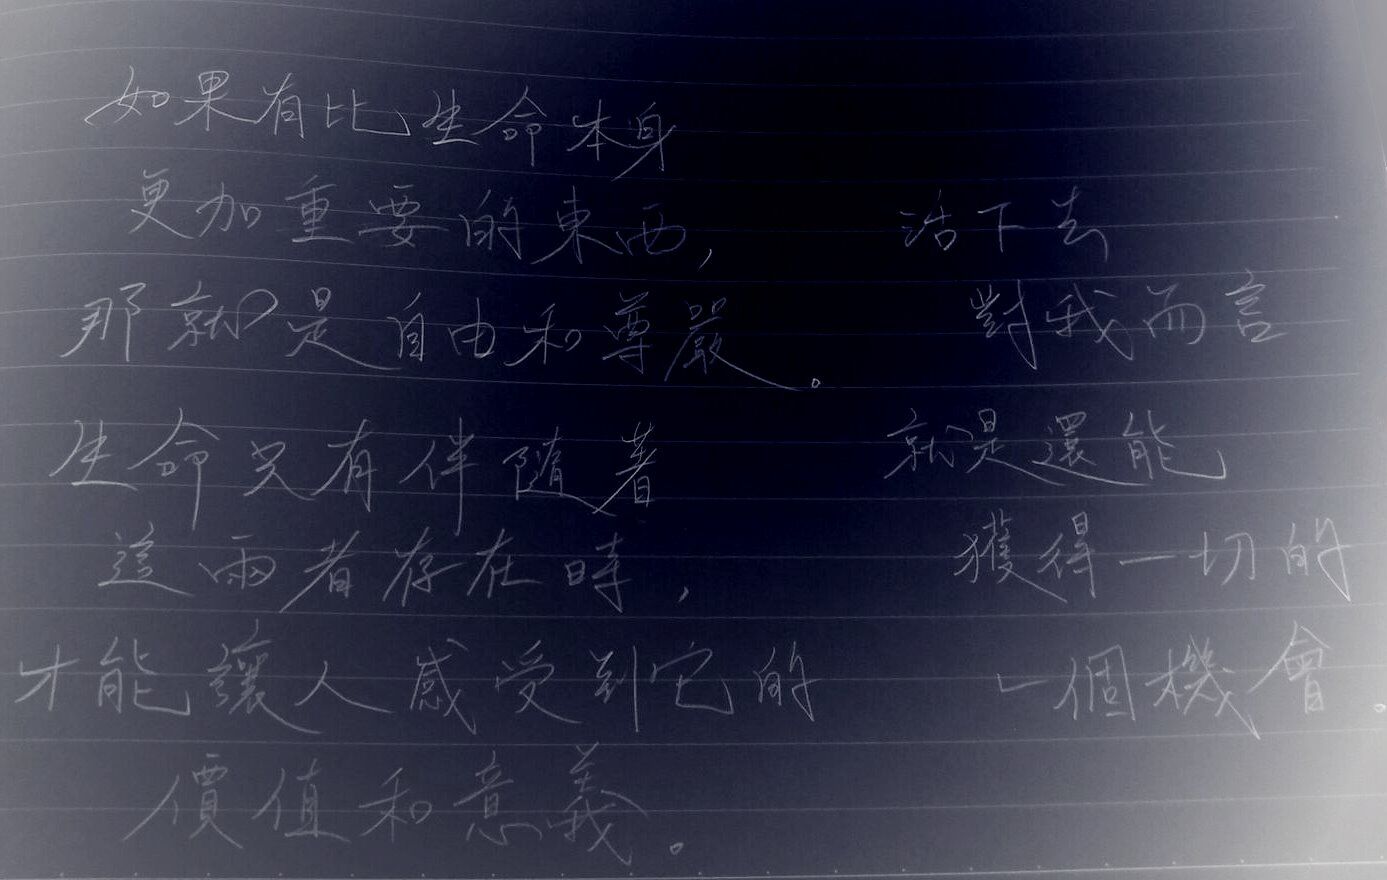 如果有比生命本身
更加重要的東西,
那就是自由和尊嚴。
生命只有伴隨著
這兩者存在時,
才能讓人感受到它的
價值和意義。
活下去
對我而言
就是還能
獲得一切的
一個機會。